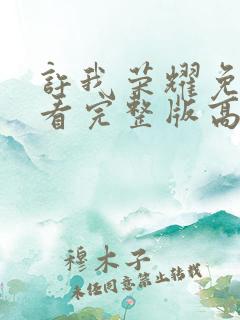 許我荣耀免
看完整版高
穆木子
未经同意禁止转载